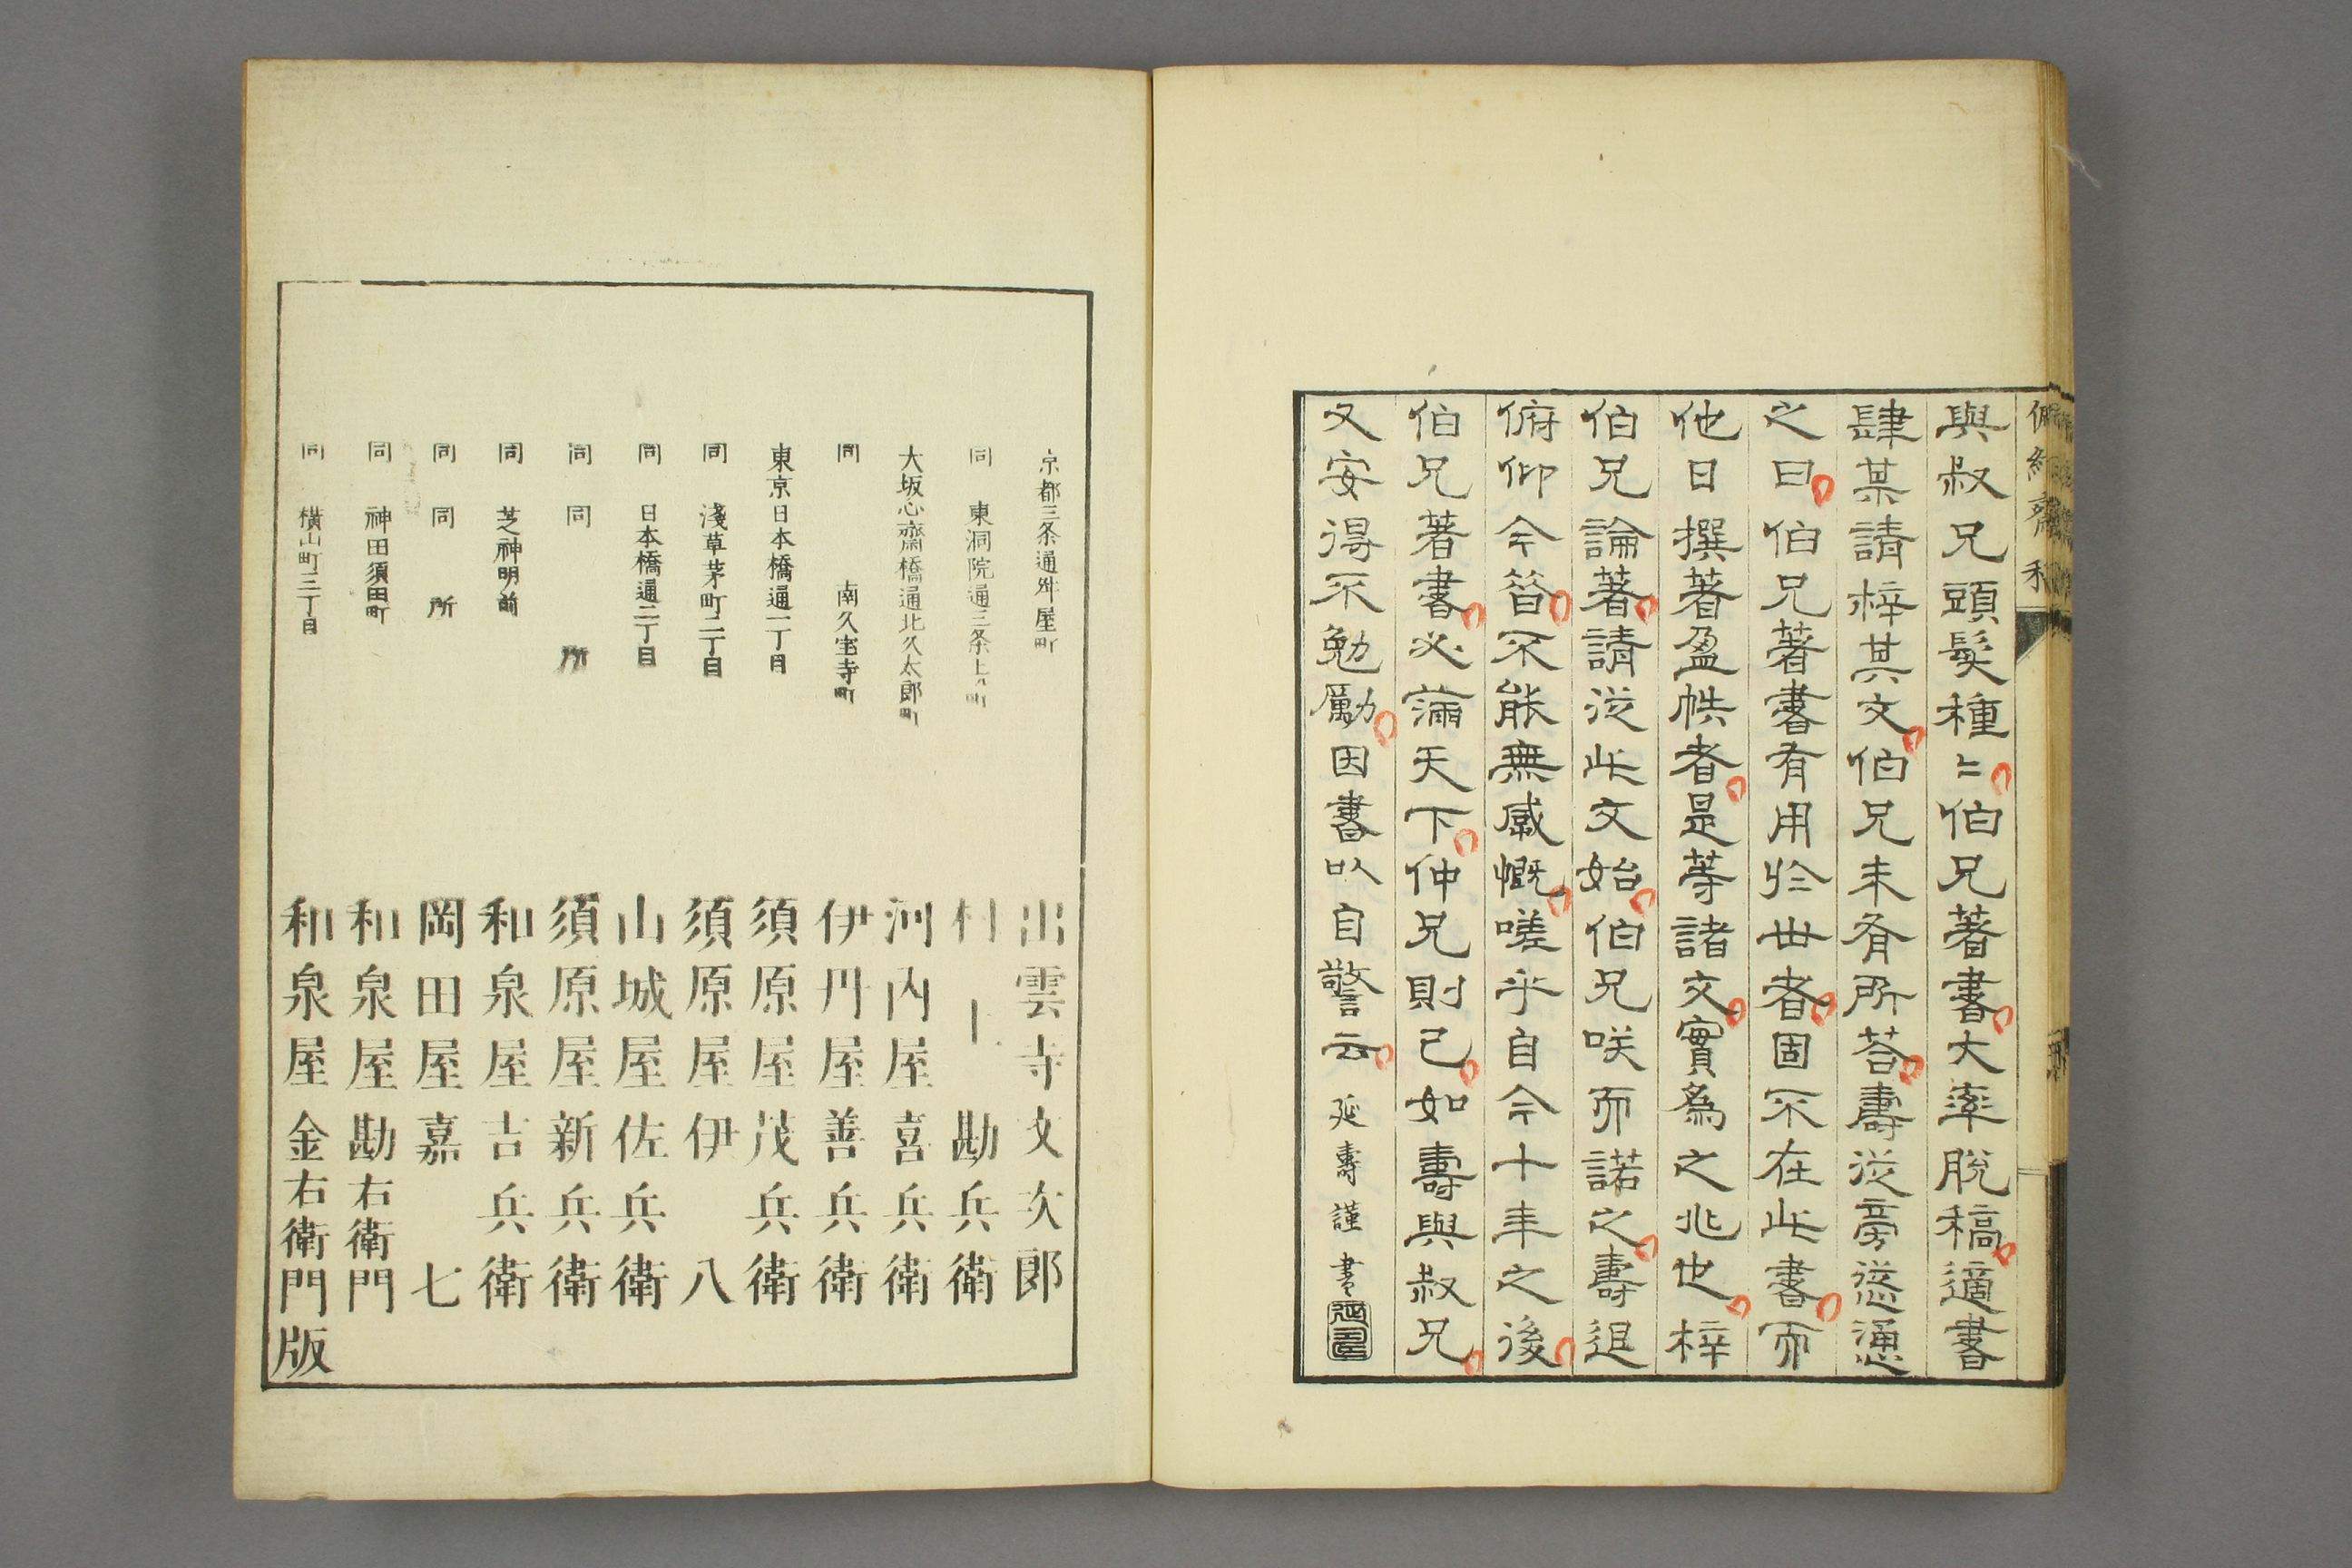 與叔兄頭髮種〻伯兄著書大率脫稿適書
肆某請梓其文伯兄未有所荅壽從旁慫慂
之曰伯兄著書有用於世者固不在此書而
他日撰著盈帙者是等諸文實為之兆也梓
伯兄論著請從此文始伯兄咲而諾之壽退
俯仰今昔不能無感慨嗟乎自今十年之後
伯兄著書必滿天下仲兄則已如壽與叔兄
又安得不勉勵因書以自警云 延壽謹書
京都三条通舛屋町 出雲寺文次郎
同 東洞院通三条上ル町 村上勘兵衛
大坂心齋橋通北久太郎町 河内屋喜兵衛
同 南久宝寺町 伊丹屋善兵衛
東京日本橋通一丁目 須原屋茂兵衛
同 淺草茅町二丁目 須原屋伊八
同 日本橋通二丁目 山城屋佐兵衛
同 同所 須原屋新兵衛
同 芝神明前 和泉屋吉兵衛
同 同所 岡田屋嘉七
同 神田須田町 和泉屋勘右衛門
同 橫山町三丁目 和泉屋金右衛門版